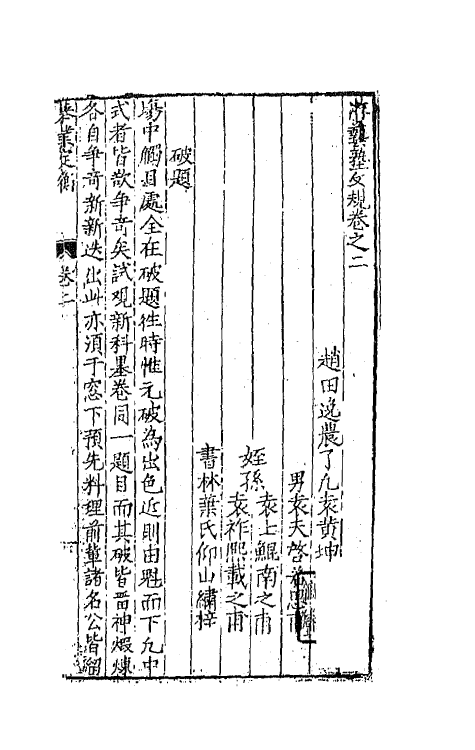 游藝塾文規卷之二
趙田逸農了凡袁黃坤
男袁天啓若思甫
姪袁士鯤南之甫
孫袁祚熙載之甫
書林葉氏仰山繡梓
破題
塲中觸目處全在破題徃時惟元破為出色近則由魁而下凢中
式者皆欲争竒矣試观新科墨卷同一題目而其破皆畱神煅煉
各自争竒新新迭出此亦湏于窓下預先料理前軰諸名公皆留
舉業定衡
卷二